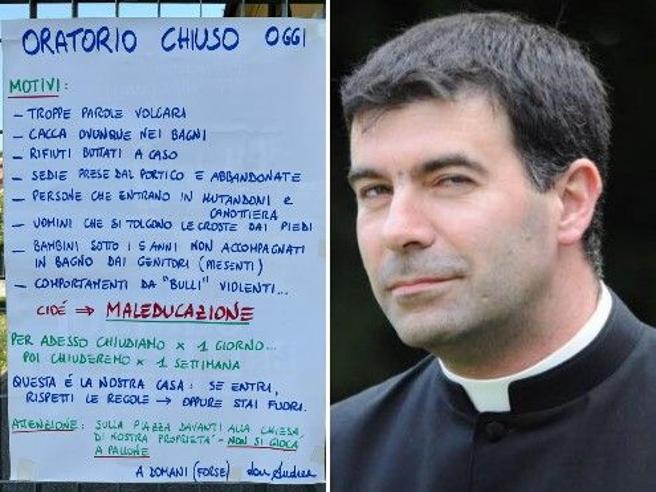 ORATORIO CHIUSO OGGI
MOTIVI:
– TROPPE PAROLE VOLGARI
– CACCA OVUNQUE NEI BAGNI
– RIFIUTI BUTTATI A CASO
– SEDIE PRESE DAL PORTICO E ABBANDONATE
– PERSONE CHE ENTRANO IN MUTANDONI E
CANOTTIERA
– UOMINI CHE SI TOLGONO LE CROSTE DAI PIEDI
– BAMBINI SOTTO I 5 ANNI NON ACCOMPAGNATI
IN BAGNO DAI GENITORI (MESENTI)
– COMPORTAMENTI DA "BULLI" VIOLENTI...
CIOÉ ⇒ MALEDUCAZIONE
PER ADESSO CHIUDIAMO × 1 GIORNO...
POI CHIUDEREMO × 1 SETTIMANA
QUESTA É LA NOSTRA CASA: SE ENTRI,
RISPETTI LE REGOLE → OPPURE STAI FUORI.
ATTENZIONE: SULLA PIAZZA DAVANTI ALLA CHIESA,
DI NOSTRA PROPRIETA' - NON SI GIOCA
A PALLONE
A DOMANI (FORSE) Don Andrea